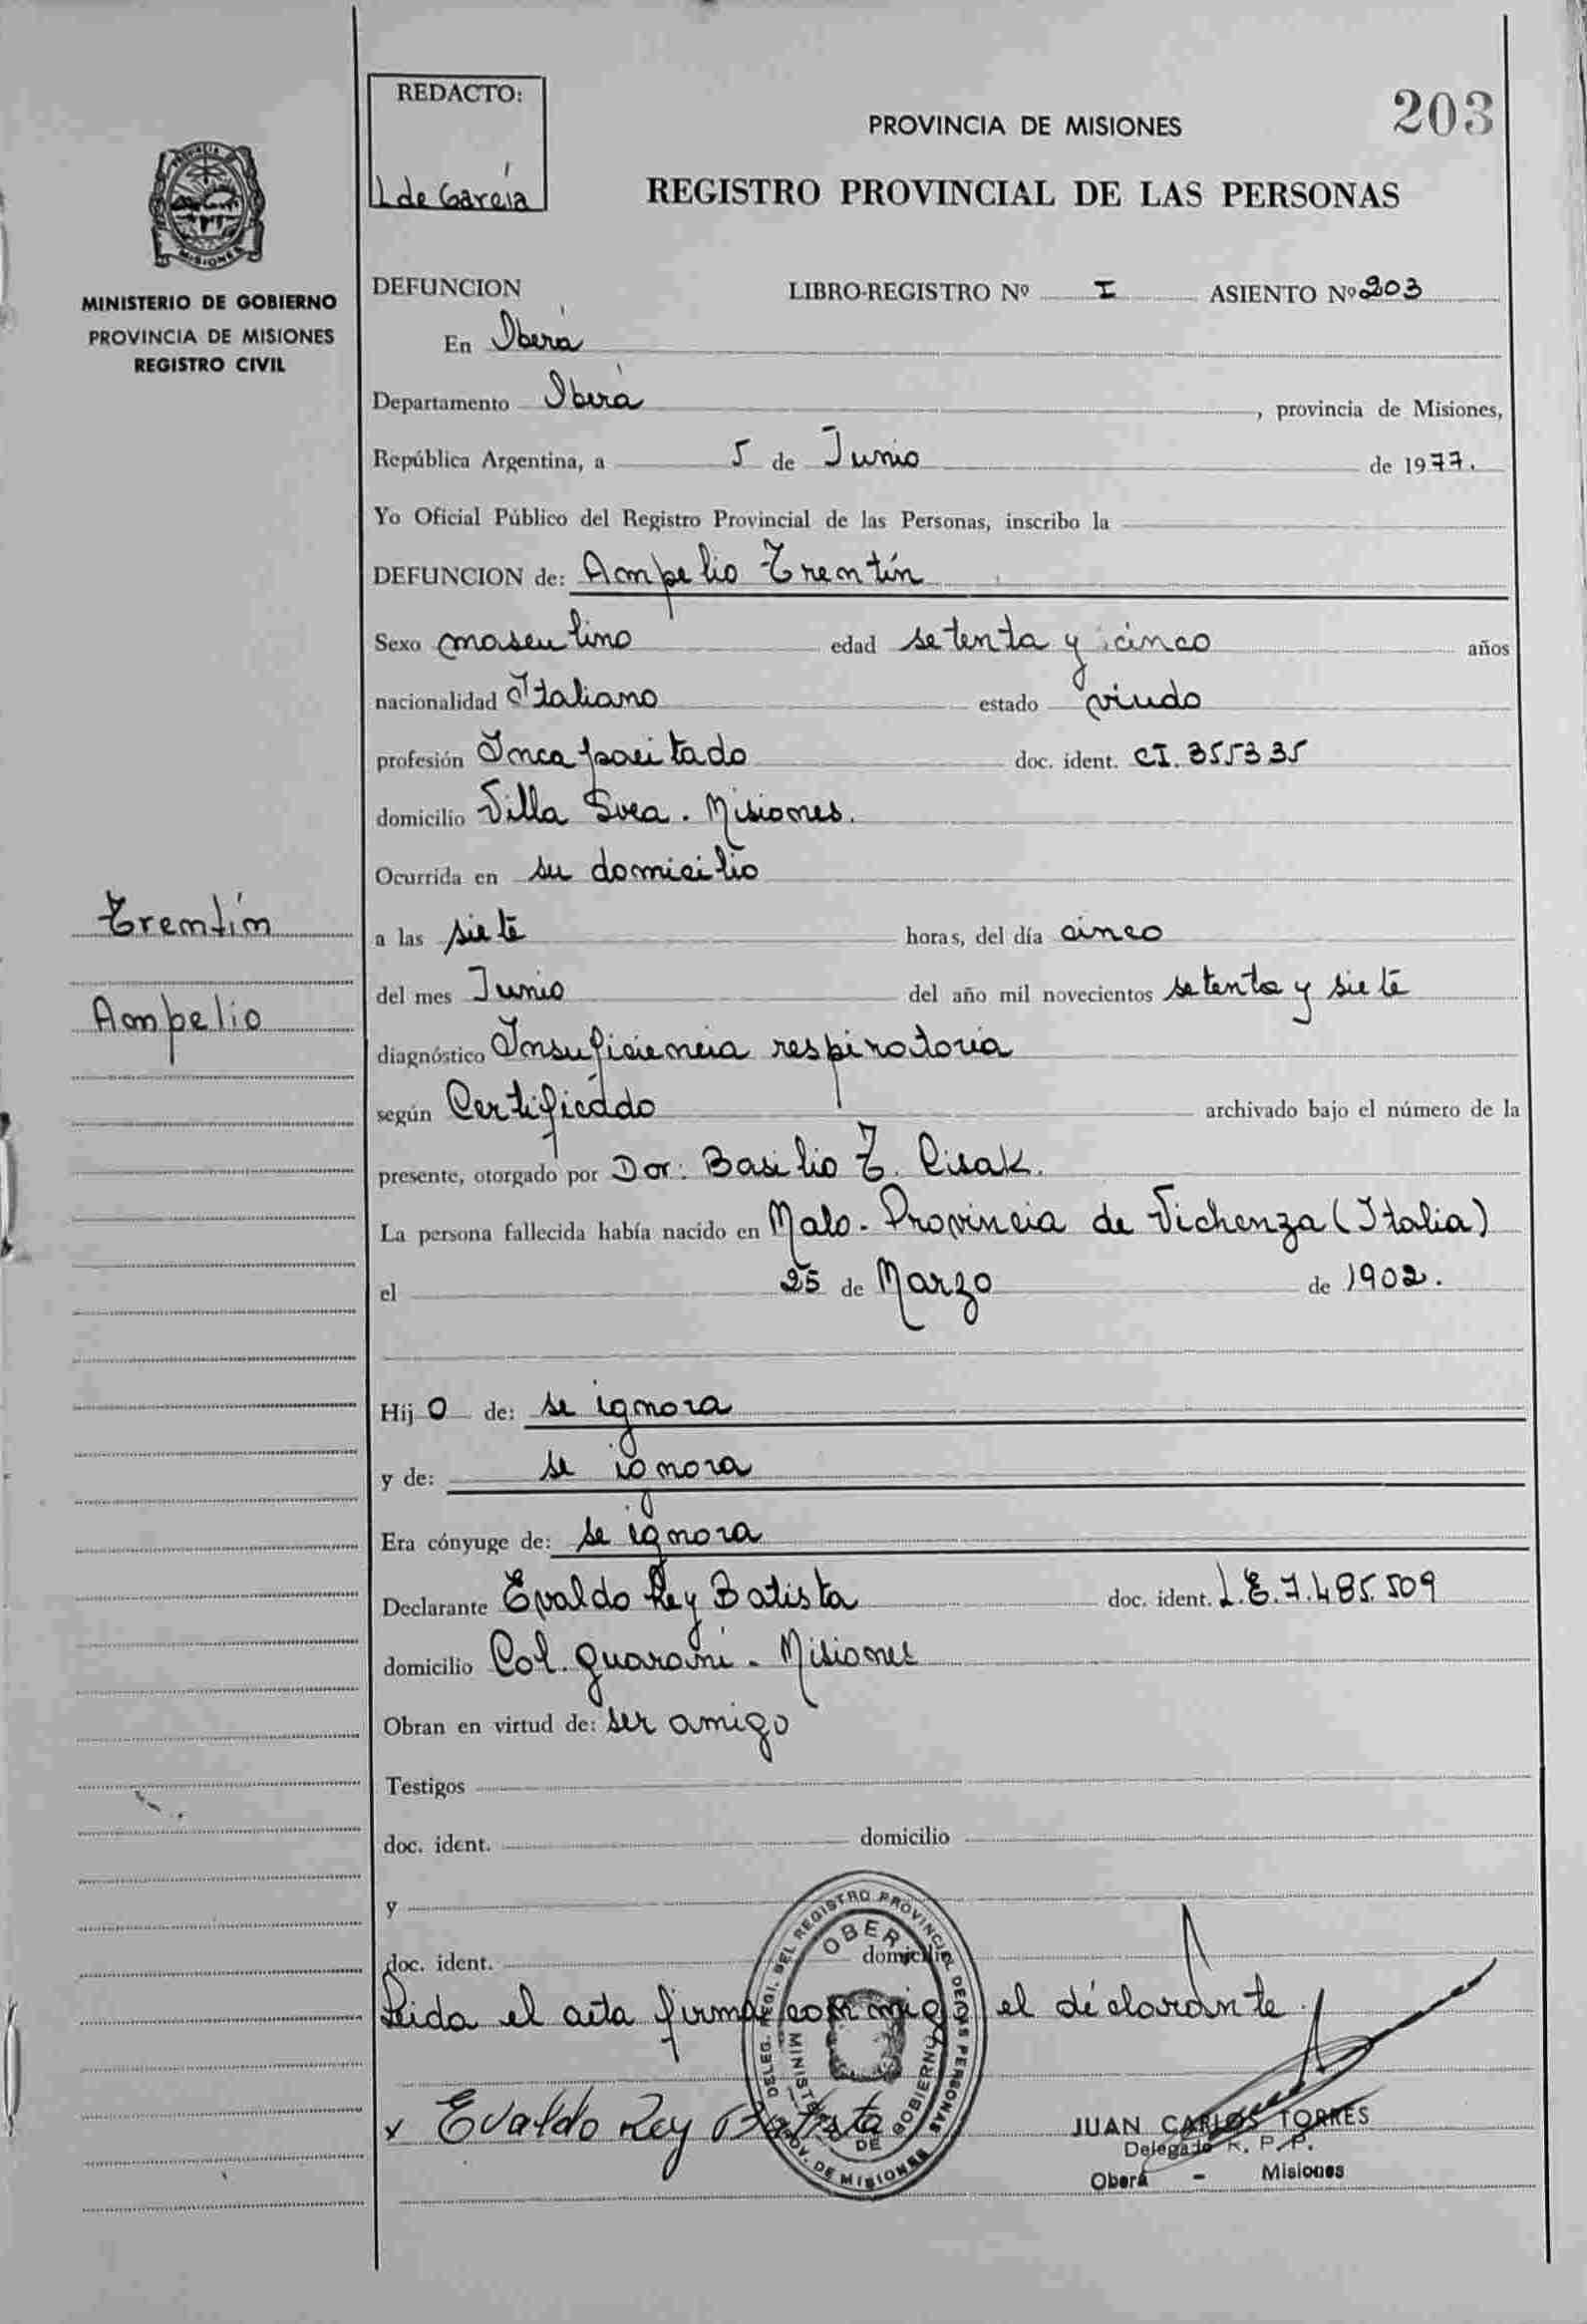 203
REDACTO:
L de García
PROVINCIA DE MISIONES
REGISTRO PROVINCIAL DE LAS PERSONAS
PROVINCIA DE
MISIONES
MINISTERIO DE GOBIERNO
PROVINCIA DE MISIONES
REGISTRO CIVIL
DEFUNCION LIBRO-REGISTRO Nº I ASIENTO Nº 203
En Oberá
Departamento Oberá, provincia de Misiones,
República Argentina, a 5 de Junio de 1977.
Yo Oficial Público del Registro Provincial de las Personas, inscribo la
DEFUNCION de: Ampelio Trentín
Sexo masculino edad setenta y cinco años
nacionalidad Italiano estado viudo
profesión Incapacitado doc. ident. CI. 355335
domicilio Villa Svea. Misiones.
Ocurrida en su domicilio
Trentín
Ampelio
a las siete horas, del día cinco
del mes Junio del año mil novecientos setenta y siete
diagnóstico Insuficiencia respiratoria
según Certificado archivado bajo el número de la
presente, otorgado por Dor: Basilio T. Cisak.
La persona fallecida había nacido en Malo - Provincia de Vichenza (Italia)
el 25 de Marzo de 1902.
Hijo de: se ignora
y de: se ignora
Era cónyuge de: se ignora
Declarante Evaldo Rey Batista doc. ident. L.E. 7.485.509
domicilio Col. Guaraní - Misiones
Obran en virtud de: ser amigo
Testigos
doc. ident. domicilio
y
doc. ident. domicilio
Leida el acta firma conmigo el déclarante
DELEG. REGI. DEL REGISTRO PROVINCIAL DE LAS PERSONAS
OBERA
MINISTERIO DE GOBIERNO
PROV. DE MISIONES
x Evaldo Rey Batista
JUAN CARLOS TORRES
Delegado R. P. P.
Oberá - Misiones